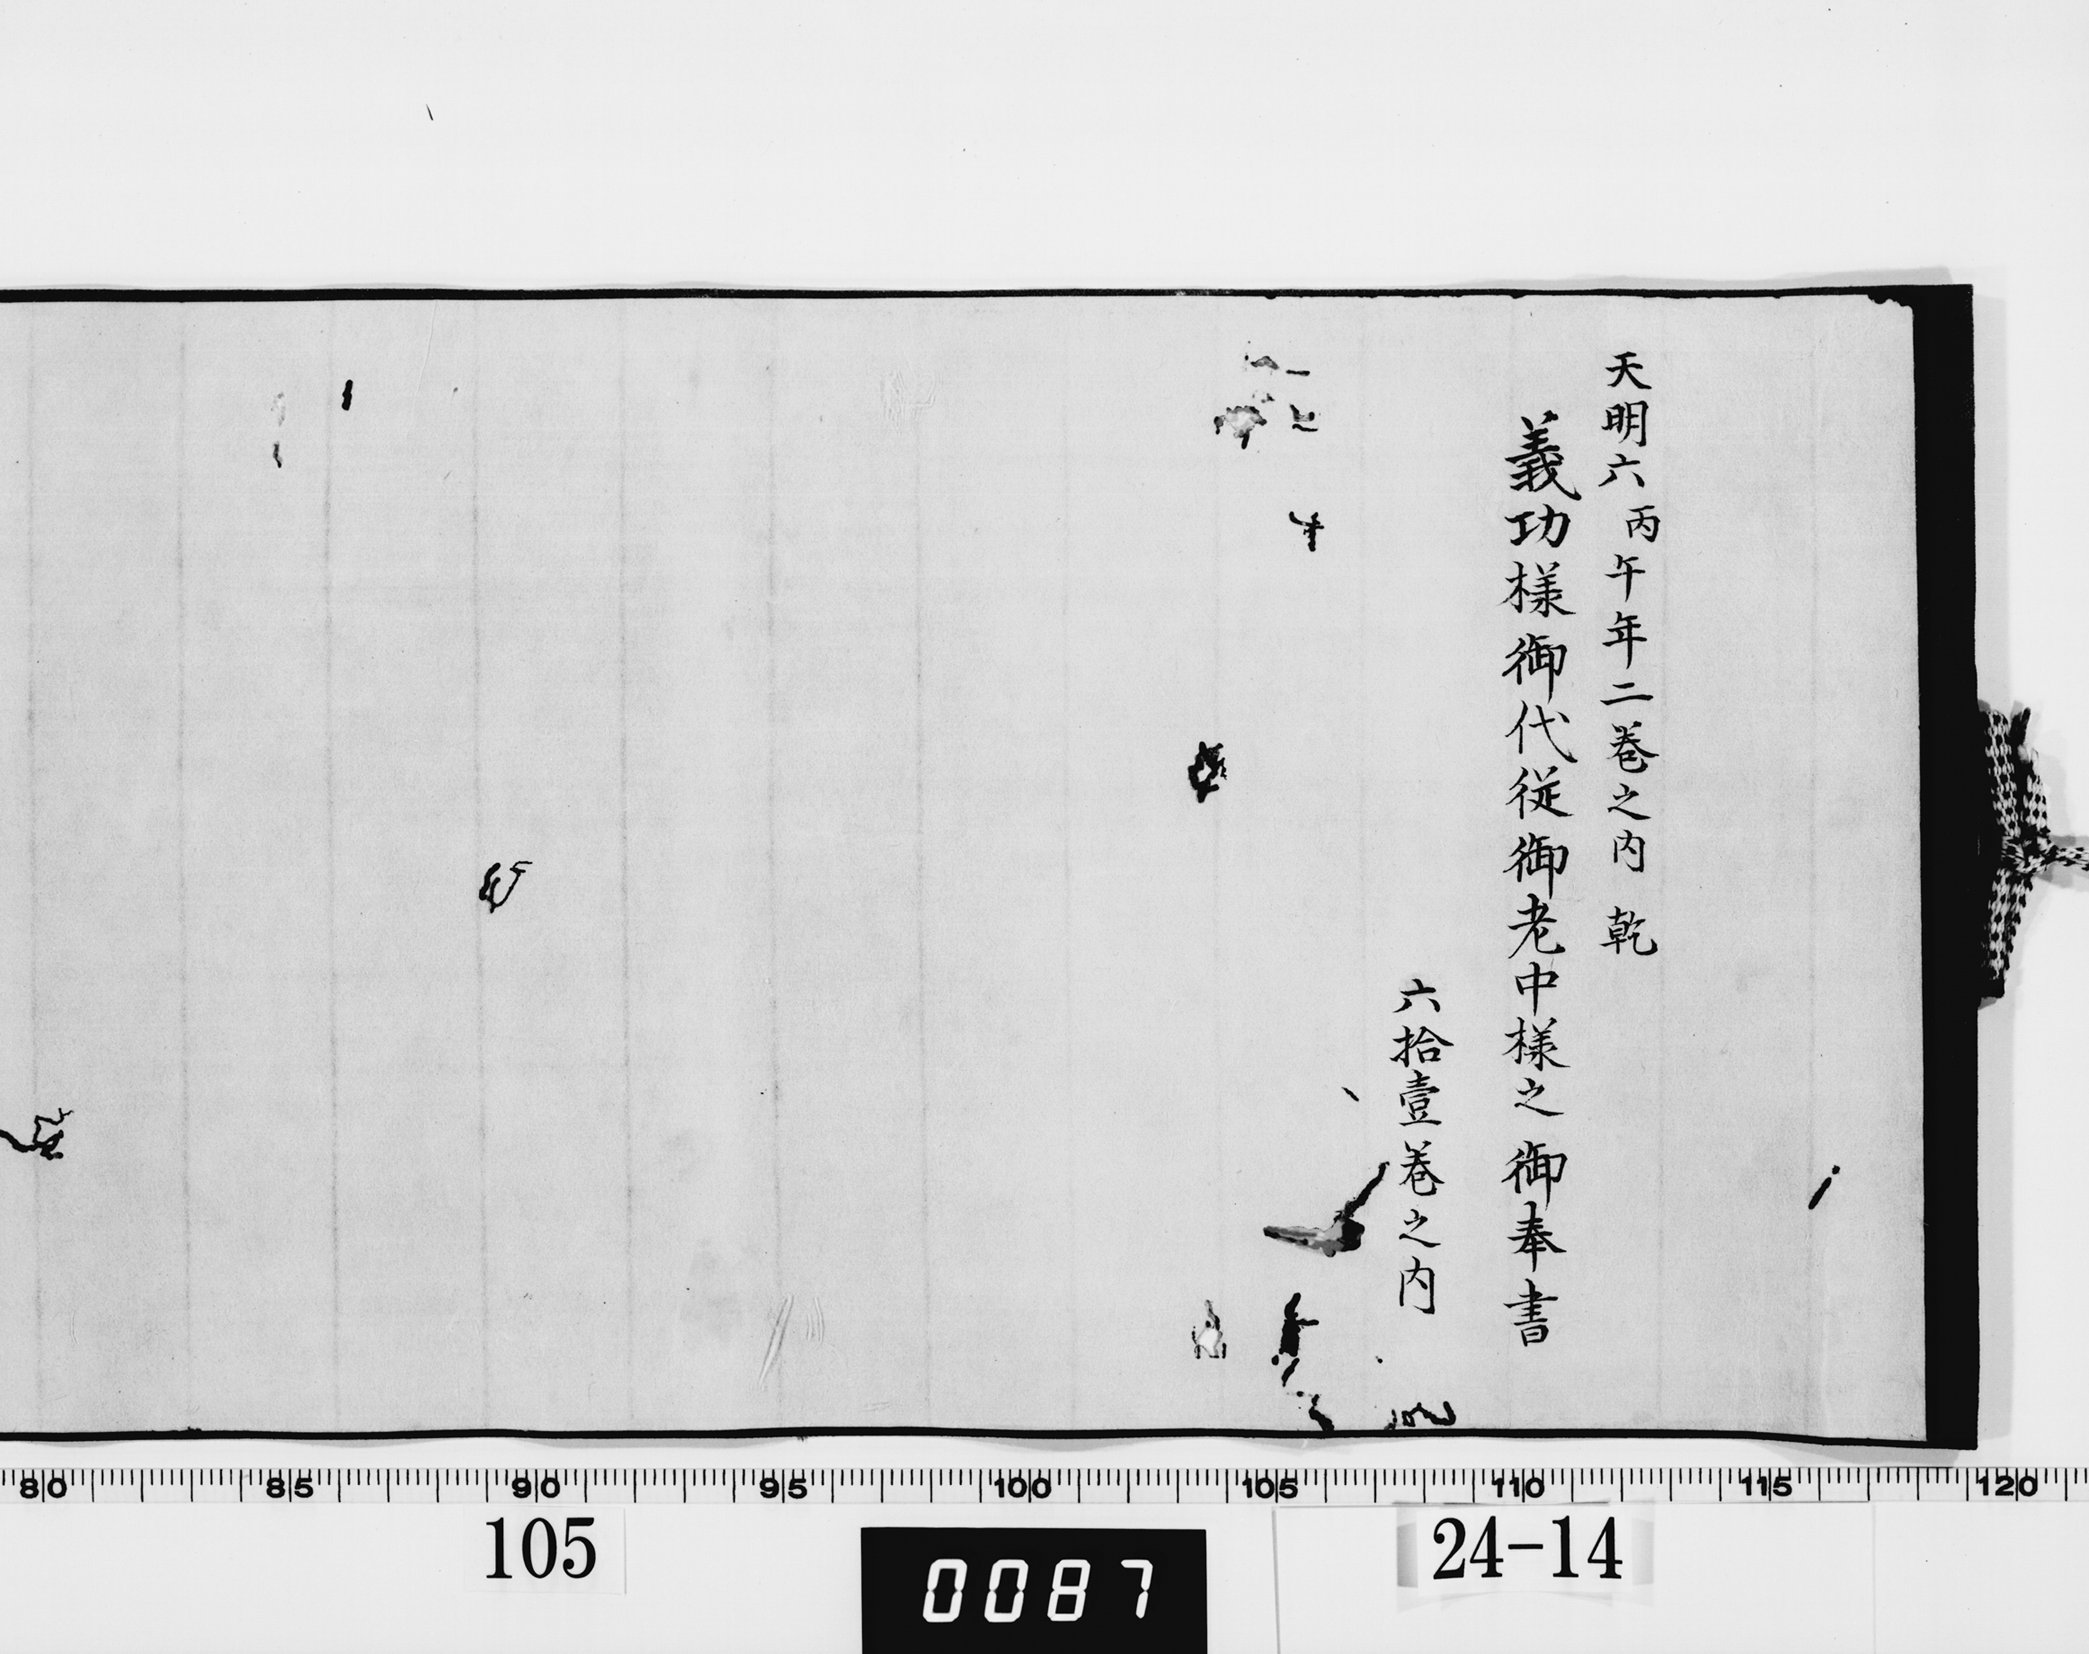 天明六丙午年二巻之内 乾
義功様御代従御老中様之御奉書
六拾壹巻之内
80 85 90 95 100 105 110 115 120
105
0087
24-14